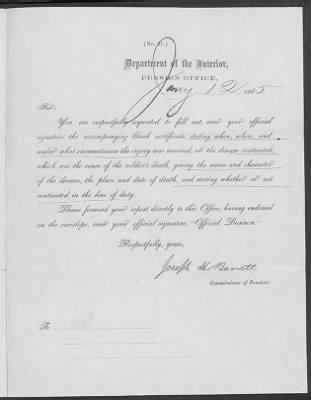 (No. 21.)
Department of the Interior,
PENSION OFFICE,
Jany 12 1865
SIR:
You are respectfully requested to fill out, over your official
signature the accompanying blank certificate, stating when, where, and
under what circumstances the injury was received, or the disease contracted,
which was the cause of the soldiers death, giving the name and character
of the disease, the place and date of death, and stating whether or not
contracted in the line of duty.
Please forward your report directly to this Office, having endorsed
on the envelope, over your official signature, "Official Business."
Respectfully, yours,
Joseph H Barrett
Commissioner of Pensions.
To